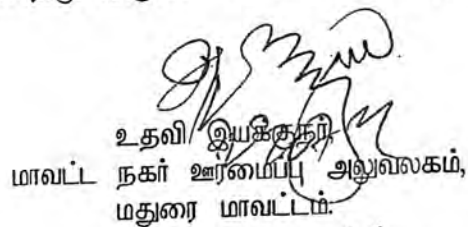 உதவி இயக்குநர்
மாவட்ட நகர் ஊரமைப்பு அலுவலகம்,
மதுரை மாவட்டம்.